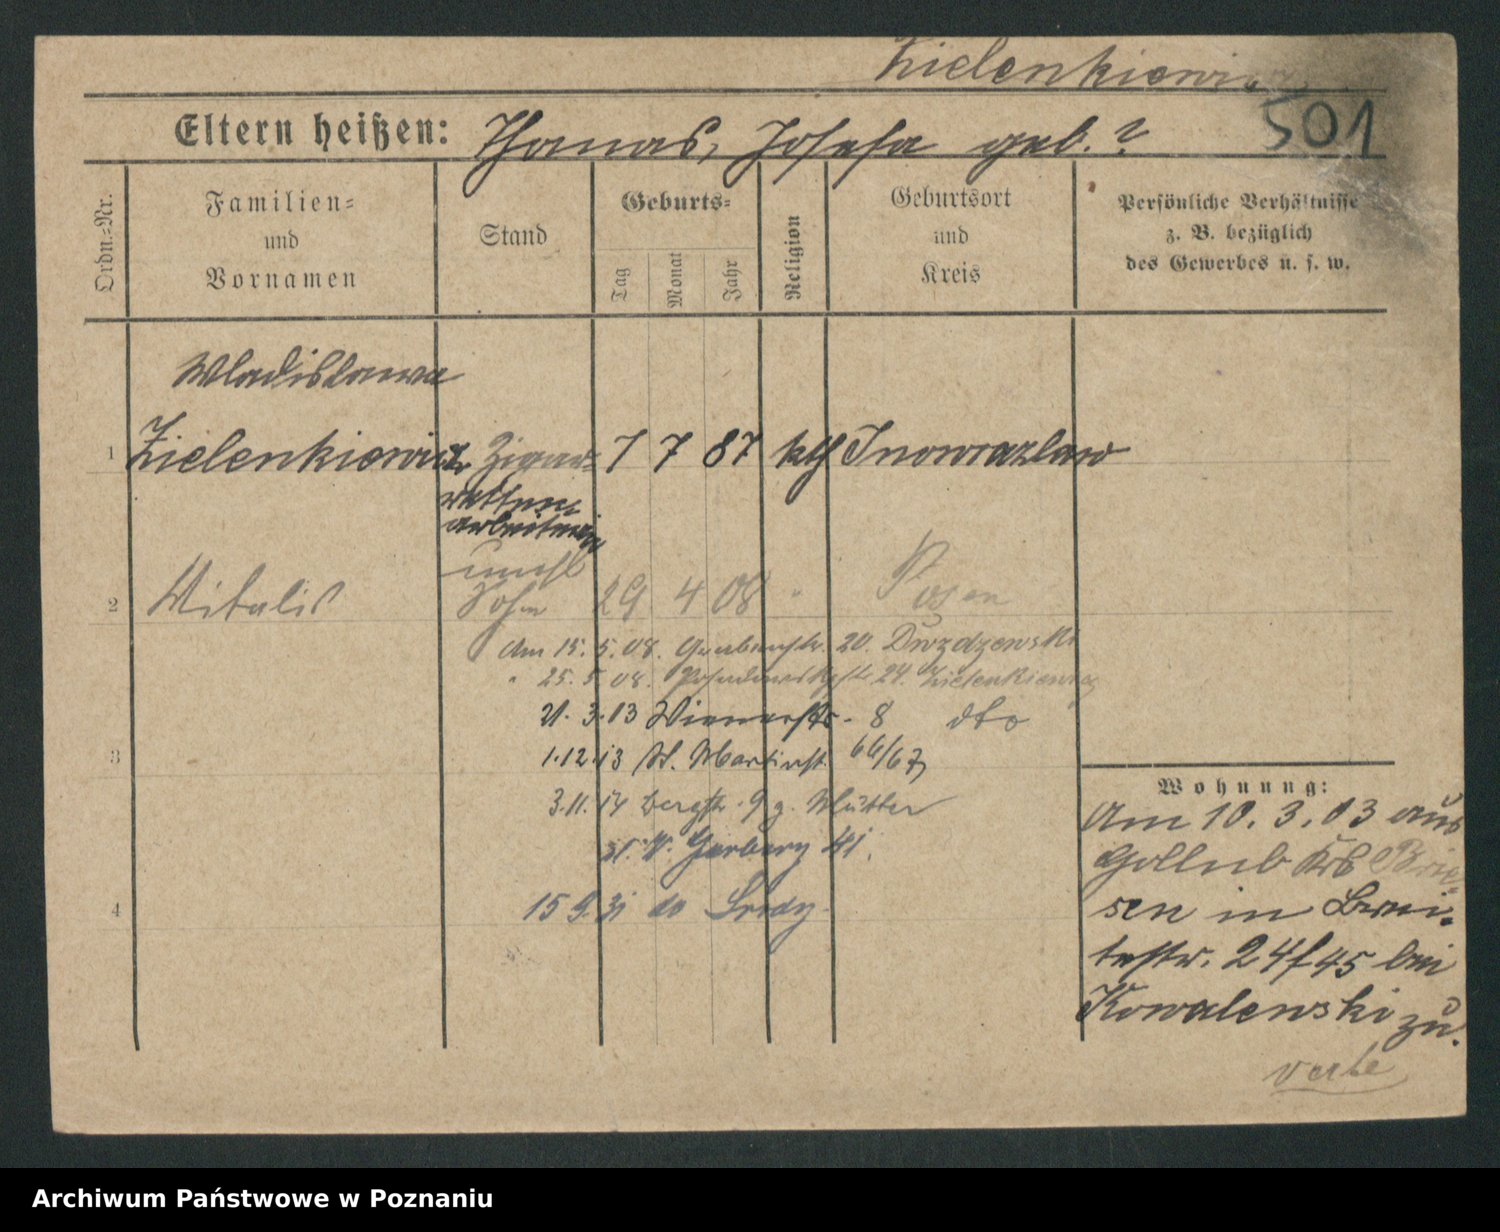 Zielenkiewicz
501
Eltern heißen: Thomas, Josefa geb. ?
Ordn.-Nr.
Familien-
und
Vornamen
Stand
Geburts-
Tag
Monat
Jahr
Religion
Geburtsort
und
Kreis
Persönliche Verhältnisse
z. B. bezüglich
des Gewerbes u. s. w.
Wladislawa
1 Zielenkiewicz Zigar- 7 7 87 kth Inowrazlaw
retten
arbeiterin
unehl
2 Witalis Sohn 29 4 08 " Posen
Am 15.5.08. 20. Drozdzewski
" 25.5.08. 24. Zielenkiewicz
21.3.13 Wienerstr. 8 dto
3 1.12.13 St. Martinstr. 66/67
3.11.14 Bergstr. 9 z. Mutter
Garbary 41.
4 15 9. 31 do Środy
Wohnung:
Am 10.3.03 aus
Gollub Krs Brie-
sen in Brei-
testr. 24 f 45 bei
Kowalewski zu.
verte
Archiwum Państwowe w Poznaniu